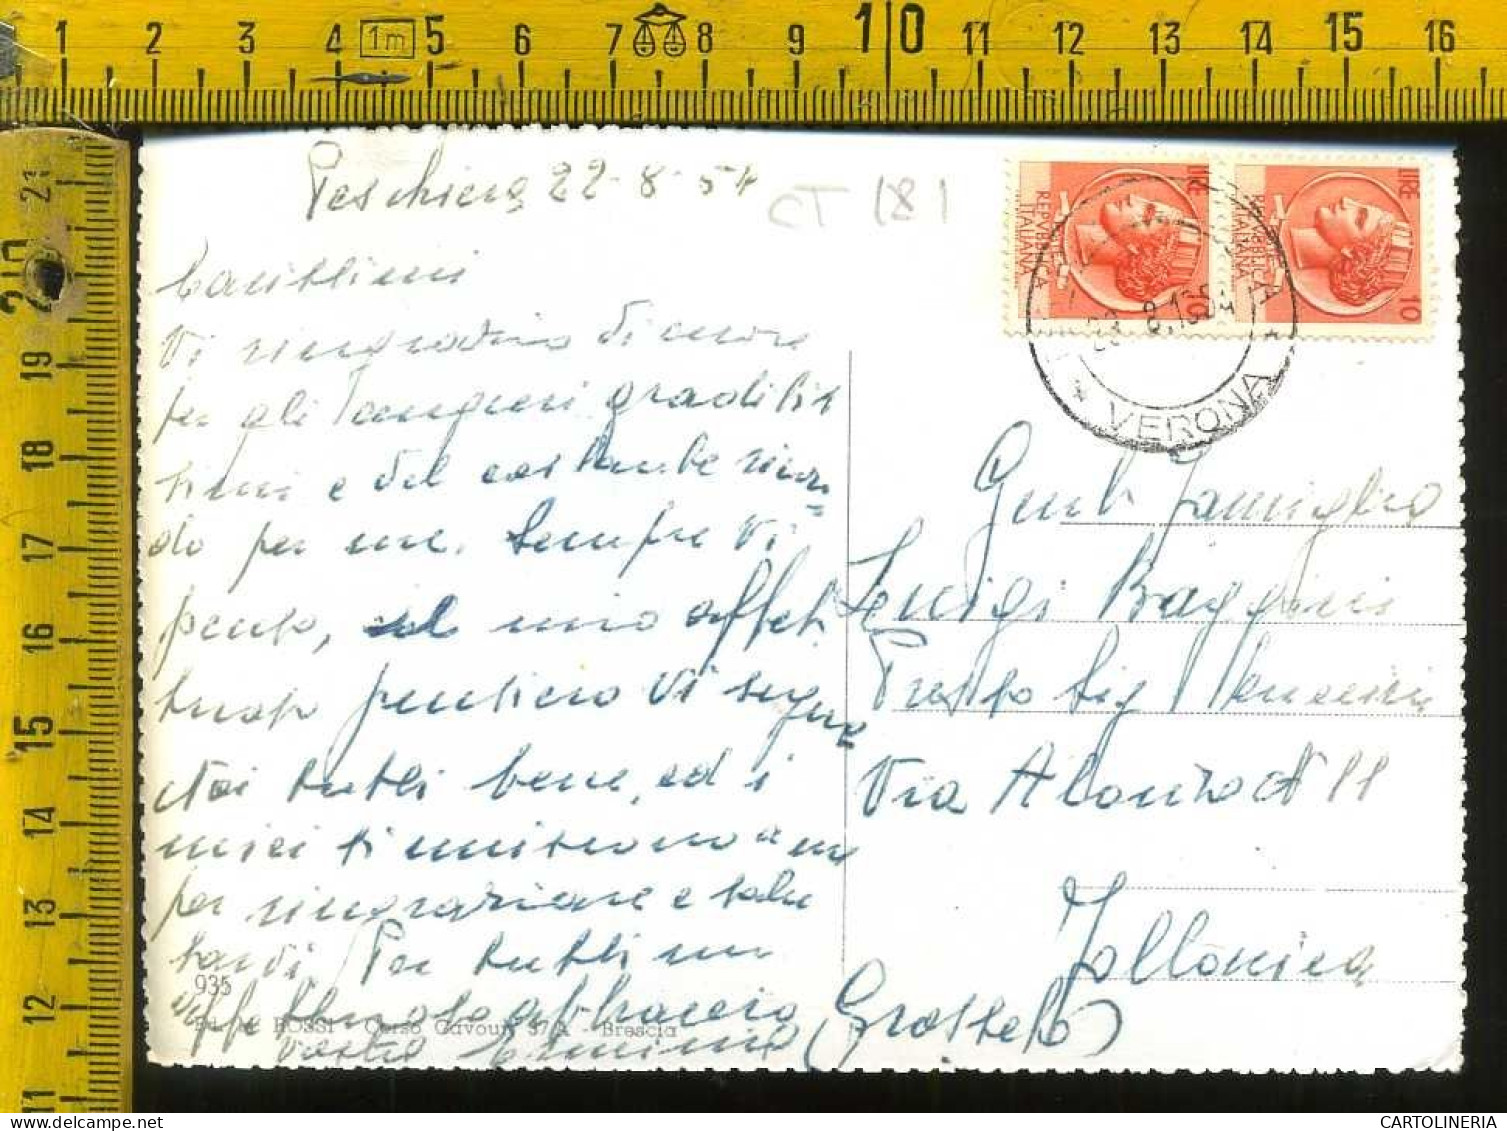 1 2 3 4 1m 5 6 7 8 9 10 11 12 13 14 15 16
21
20
19
18
17
16
15
14
13
12
11
Peschiera 22-8-54
CT 181
LIRE 10 REPVBBLICA ITALIANA
LIRE 10 REPVBBLICA ITALIANA
23 8.1954
* VERONA *
Carissimi
Vi ringrazio di cuore
per gli auguri graditis
simi e del costante ricor=
do per me. Sempre Vi
penso, il mio affet.
tuoso pensiero Vi segue
Noi tutti bene, ed i
miei si uniscono a me
per ringraziare e salu
tarvi. Per tutti un
affettuoso abbraccio
vostra
935
ROSSI - Corso Cavour 37/A - Brescia
Gent. Famiglia
Luigi Baggini
Presso Sig
Via N 11
Follonica
(Grosseto)
CARTOLINERIA